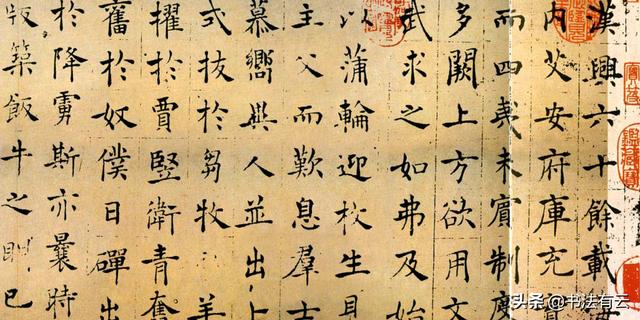 漢興六十餘載
内艾安府庫充
而四夷未賓制度
多闕上方欲用文
武求之如弗及始
以蒲輪迎枚生見
主父而歎息羣士
慕嚮異人並出
式抜於芻牧羊
擢於賈豎衛青奮
舊於奴僕日磾出
於降虜斯亦曩時
版築飯牛之眀已
头条 @书法有云